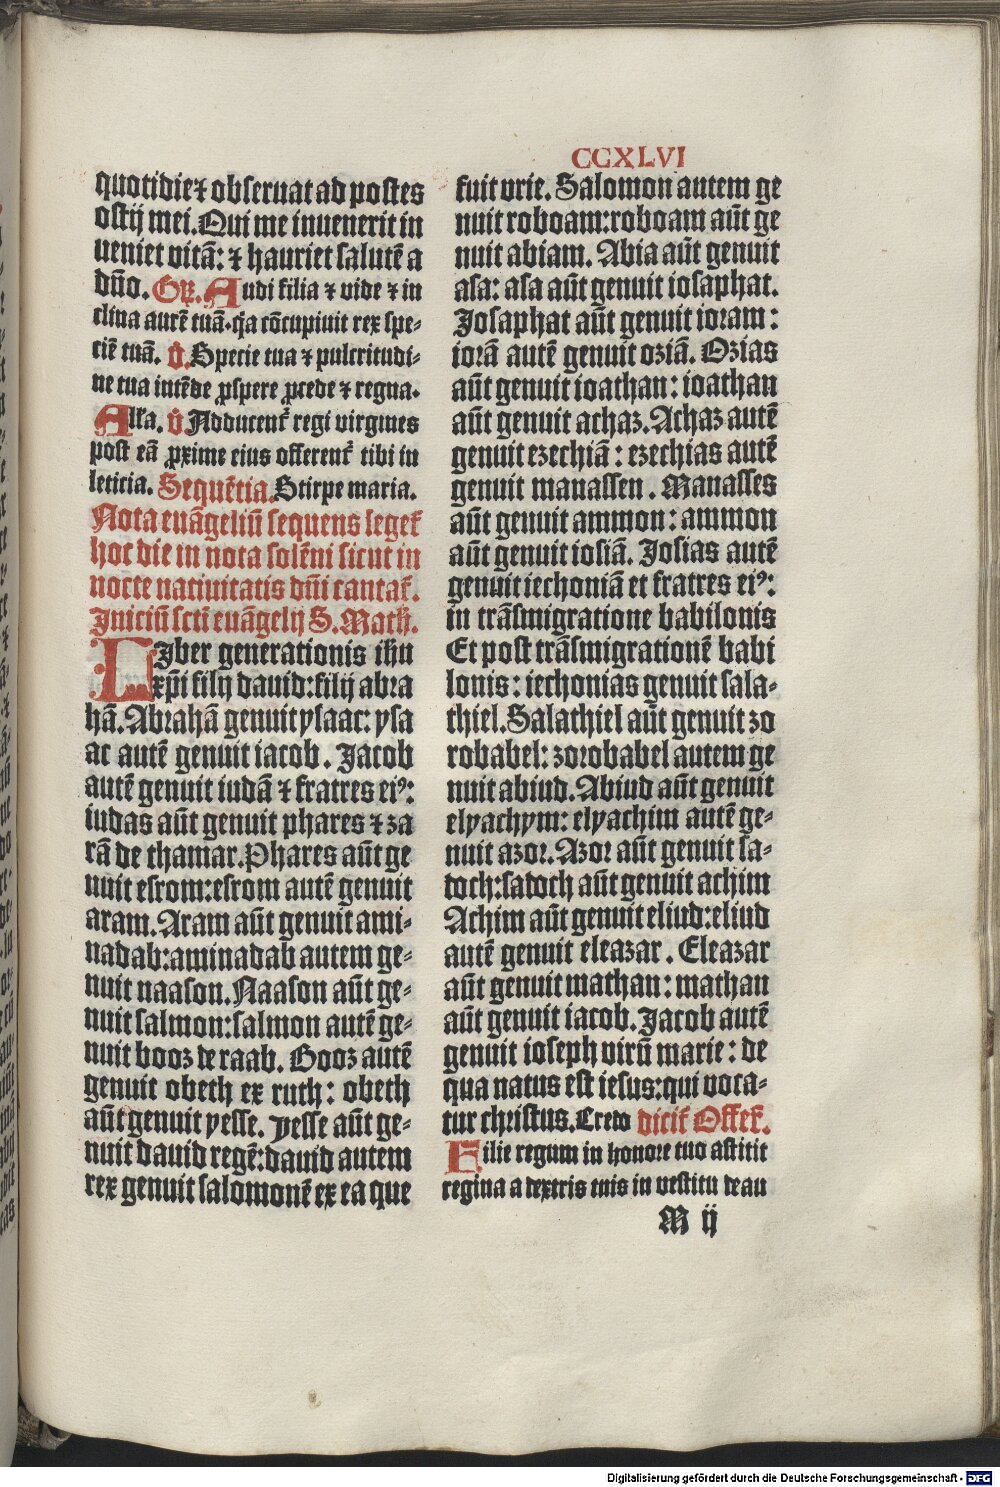 CCXLVI
quotidie ⁊ obseruat ad postes
ostij mei. Qui me inuenerit in
ueniet vitā: ⁊ hauriet salutē a
dño. Gꝛ. Audi filia ⁊ vide ⁊ in
clina aurē tuā. q̄a cōcupiuit rex spe⸗
ciē tuā. V̄. Specie tua ⁊ pulcritudi⸗
ne tua intēde ꝓspere ꝓcede ⁊ regna.
Alľa. V̄ Adducent᷑ regi virgines
post eā ꝓxime eius offerent᷑ tibi in
leticia. Sequētia. Stirpe maria.
Nota euāgeliū sequens leget᷑
hoc die in nota solēni sicut in
nocte natiuitatis dñi cantat᷑.
Iniciū scti euāgelij S. Math̄.
LIber generationis ihu
xp̄i filij dauid: filij abra
hā. Abrahā genuit ysaac: ysa
ac autē genuit iacob. Jacob
autē genuit iudā ⁊ fratres ei⁹:
iudas aūt genuit phares ⁊ za
rā de thamar. Phares aūt ge
nuit esrom: esrom autē genuit
aram. Aram aūt genuit ami⸗
nadab: aminadab autem ge⸗
nuit naason. Naason aūt ge⸗
nuit salmon: salmon autē ge⸗
nuit booz de raab. Booz autē
genuit obeth ex ruth: obeth
aūt genuit yesse. yesse aūt ge⸗
nuit dauid regē: dauid autem
rex genuit salomonē ex ea que
fuit vrie. Salomon autem ge
nuit roboam: roboam aūt ge
nuit abiam. Abia aūt genuit
asa: asa aūt genuit iosaphat.
Josaphat aūt genuit ioram:
iorā autē genuit oziā. Ozias
aūt genuit ioathan: ioathan
aūt genuit achaz. Achaz autē
genuit ezechiā: ezechias autē
genuit manassen. Manasses
aūt genuit ammon: ammon
aūt genuit iosiā. Josias autē
genuit iechoniā et fratres ei⁹:
in trāsmigratione babilonis
Et post trāsmigrationē babi
lonis: iechonias genuit sala⸗
thiel. Salathiel aūt genuit zo
robabel: zorobabel autem ge
nuit abiud. Abiud aūt genuit
elyachym: elyachim autē ge⸗
nuit azor. Azor aūt genuit sa⸗
doch: sadoch aūt genuit achim
Achim aūt genuit eliud: eliud
autē genuit eleazar. Eleazar
aūt genuit mathan: mathan
aūt genuit iacob. Jacob autē
genuit ioseph virū marie: de
qua natus est iesus: qui voca⸗
tur christus. Credo dicit᷑ Offet᷑.
Filie regum in honore tuo astitit
regina a dextris tuis in vestitu deau
M ij
Digitalisierung gefördert durch die Deutsche Forschungsgemeinschaft - DFG